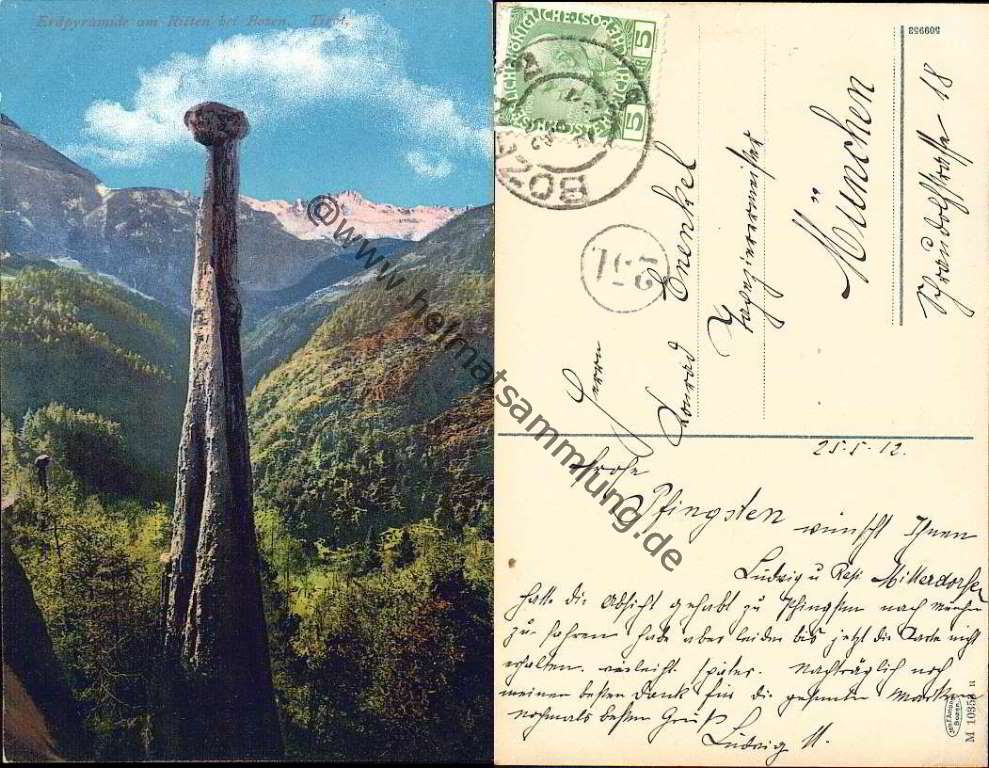 Erdpyramide am Ritten bei Bozen. Tirol.
©www.heimatsammlung.de
KAISERLICHE KÖNIGLICHE ÖSTERREICHISCHE POST
5
5
BOZEN
509953
Herrn
Konrad Enenkel
Tapezierermeister
München
Schraudolfstraße 18
25.5.12.
Frohe
Pfingsten wünscht Ihnen
Ludwig u Resi Mitterdorfer
hatte die Absicht gehabt zu Pfingsten nach Münche
zu fahren habe aber leider bis jetzt die Karte nicht
erhalten. vieleicht später. Nachträglich noch
meinen besten Dank für die gesandten Marken
nochmals besten Gruß
Ludwig M.
M 10358 u